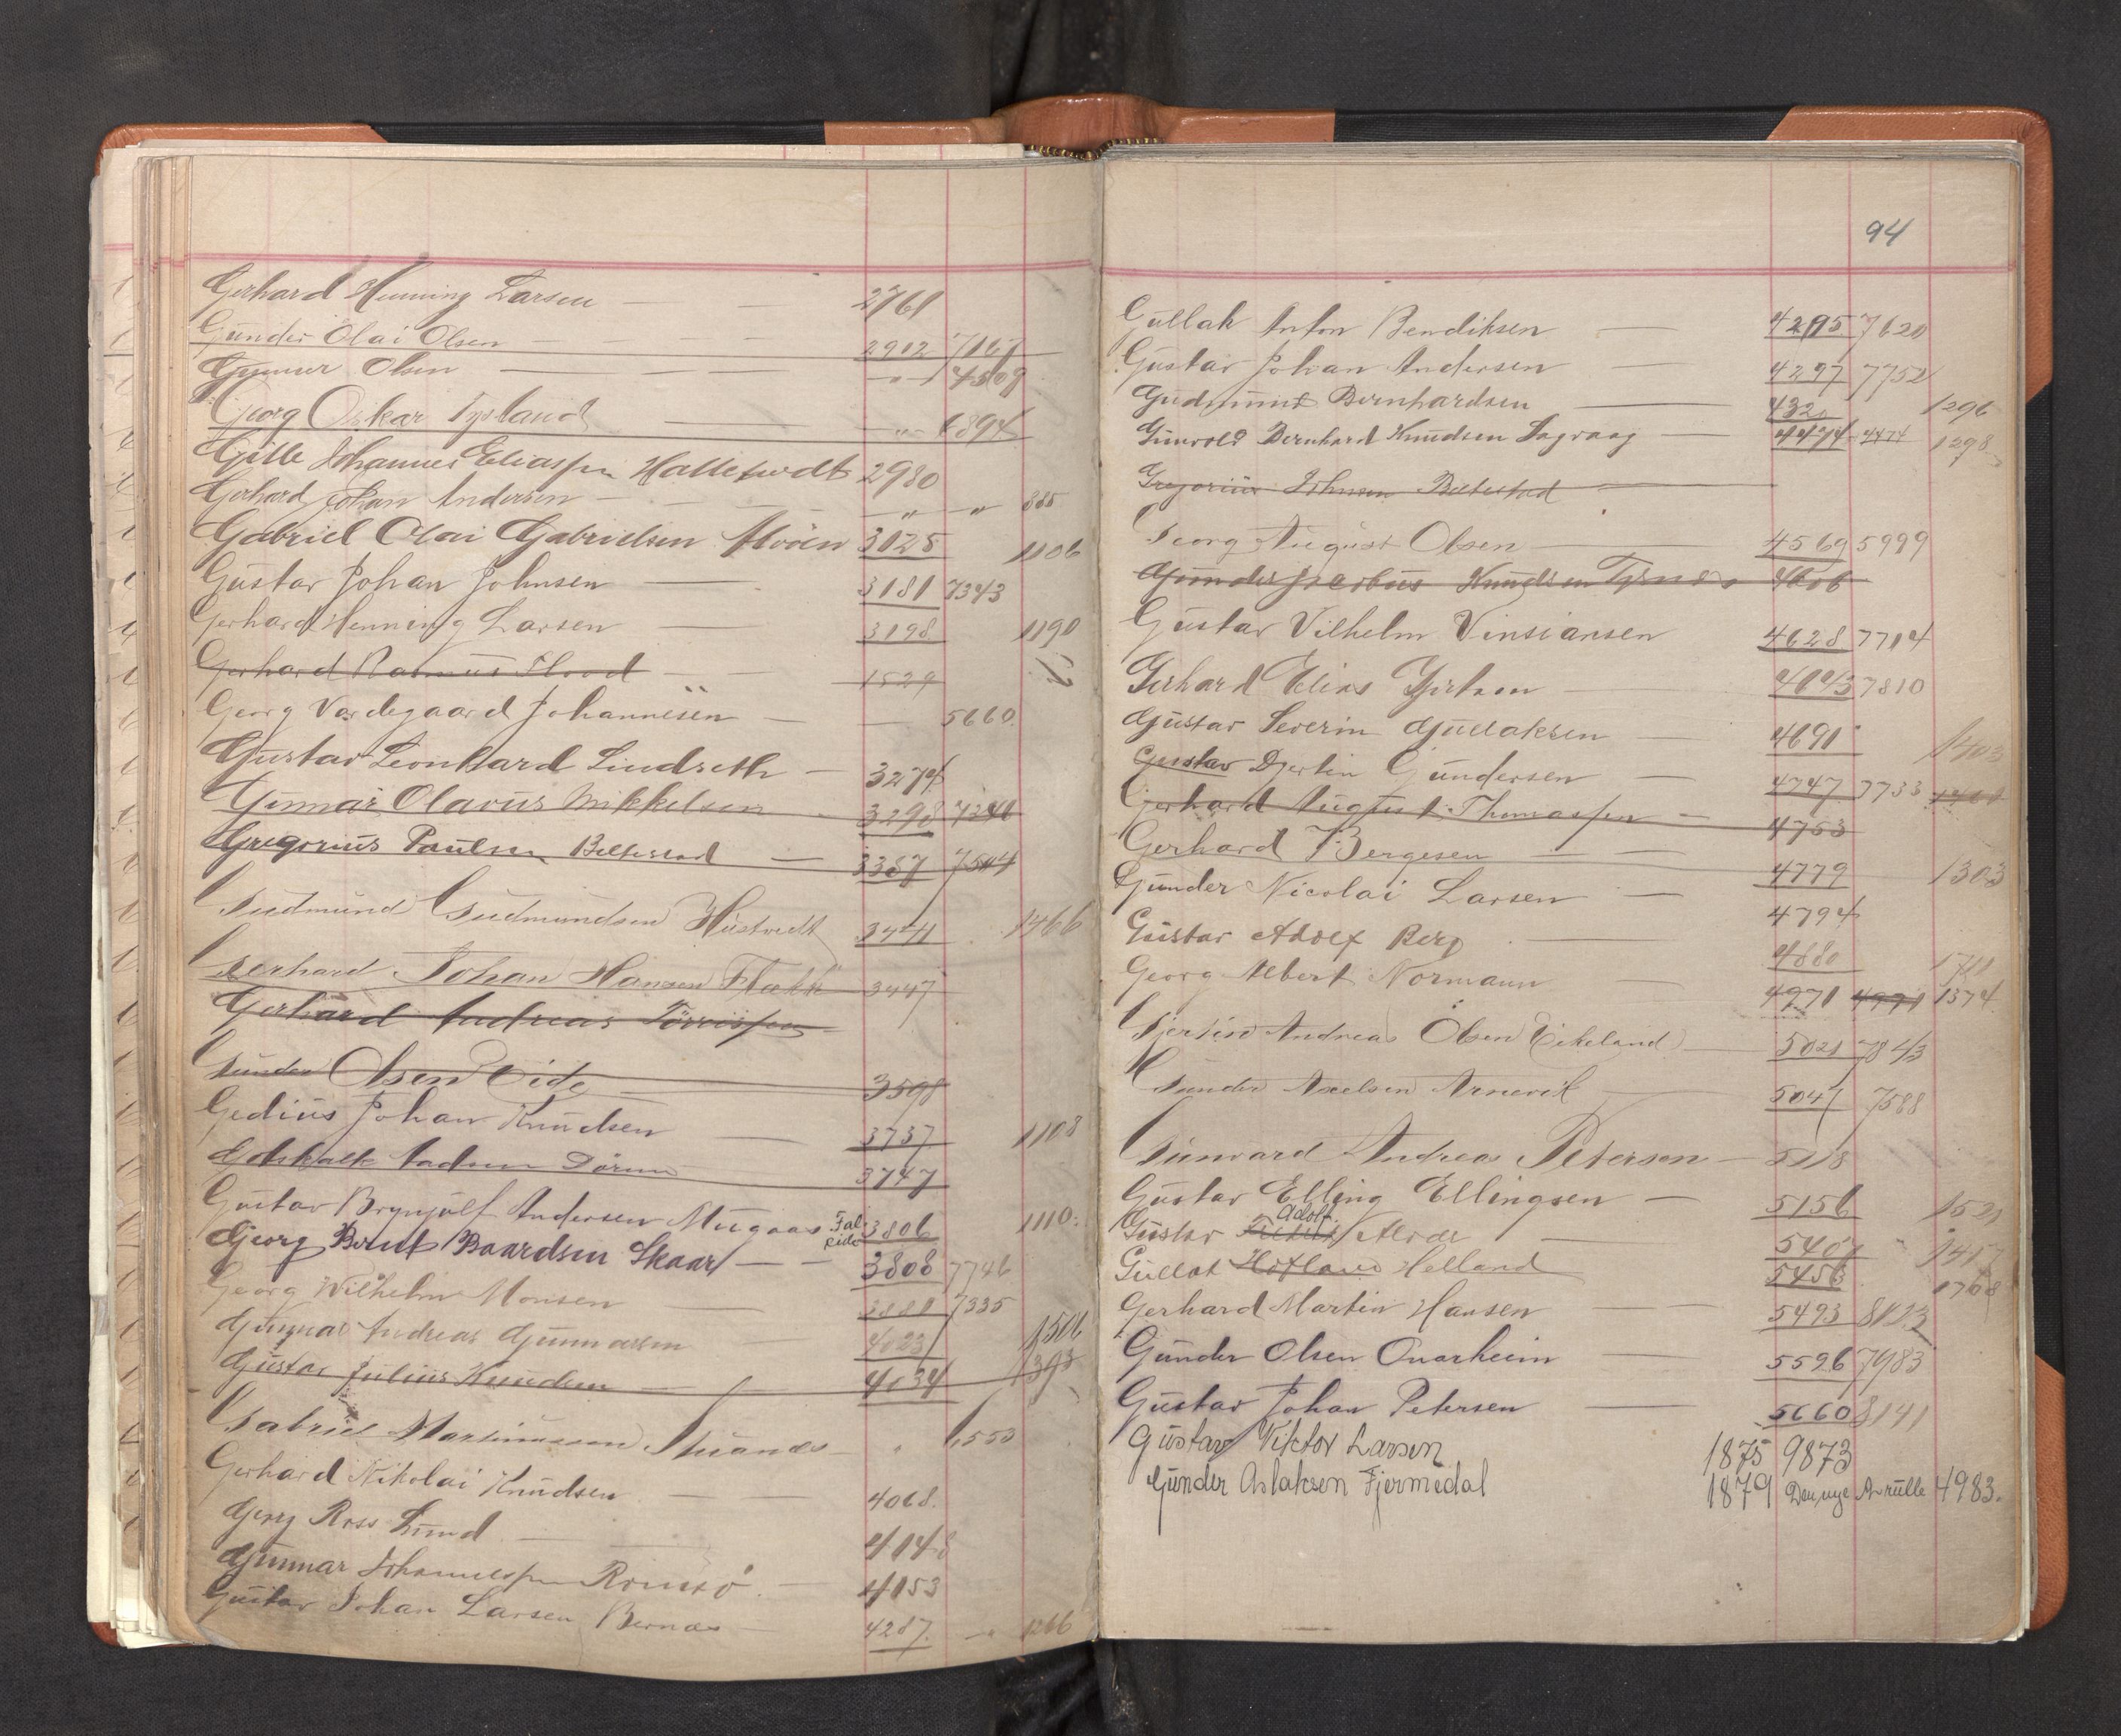 Gerhard Henning Larsen — — 2761
Gunder Olai Olsen — — 2902 7167
Gunnar Olsen — — — " — 4509
Georg Oskar Tysland — " — 6894
Gitle Johannes Eliassen 2980
Gerhard Johan Andersen — — " — " 885
Gabriel Olai Gabrielsen Alvöen 3025 1106
Gustav Johan Johnsen — 3181 7343
Gerhard Henning Larsen — 3198 1190
Gerhard Rasmus Flood — 1529
Georg Vardegaard Johannesen — — 5660
Gustav Leonhard Lindseth — 3274
Gunnar Olavus Mikkelsen 3298 7340
Gregorius Paulsen — 3387 7504
Gudmund Gudmundsen Hustvedt 3441 1466
Gerhard Johan Hansen Flække 3447
Gerhard Andreas Törrissen
Gunder Olsen Eide — 3598
Gedius Johan Knudsen — 3737 1108
3747
Gustav Brynjulf Andersen 3806 1110
Georg Bernt Baardsen Skaar — — 3808 7746
Georg Wilhelm Monsen — 3881 7335
Gunnar Andreas Gunnarsen — 4023 1506
Gustav Julius Knudsen — 4034 1393
Gabriel Martinussen " 1553
Gerhard Nikolai Knudsen — 4068
Georg Ross Lund — 4148
Gunnar Johannessen — 4153
Gustav Johan Larsen Bernæs — 4287 — " 1266
94
Gullak Anton Bendiksen — 4295 7620
Gustav Johan Andersen — 4297 7752
Gudmund Bernhardsen — 432 1296
Gunvold Bernhard Knudsen Sagvaag — 4474 4474 1298
Gregorius Johnsen —
Georg August Olsen — 4569 5999
Gunder Jacobus Knudsen Tysnæs 4606
Gustav Vilhelm Vinsiansen 4628 7714
Gerhard Elias — 4643 7810
Gustav Severin Gullaksen — 4691 1403
Gustav Djertin Gundersen — 4747 7733
Gerhard August Thomassen — 4753
Gerhard Bergesen — — 4779 1303
Gunder Nicolai Larsen — 4794
Gustav Adolf Berg — 4880
Georg Albert Normann — 4971 4971 1374
Gjertin Andreas Olsen Eikeland — 5021 7843
Gunder Axelsen Arnevik — 5047 7588
Gunvard Andreas Petersen — 5118
Gustav Elling Ellingsen — 5156 1521
Adolf
Gustav — 5407
Gullak Hofland Helland 5456 1768
Gerhard Martin Hansen — 5493 8123
Gunder Olsen Onarheim — 5596 7983
Gustav Johan Petersen — 5660 8141
Gustav Viktor Larsen 1875 9873
Gunder Aslaksen Fjermedal 1879 Den nye A rulle 4983.